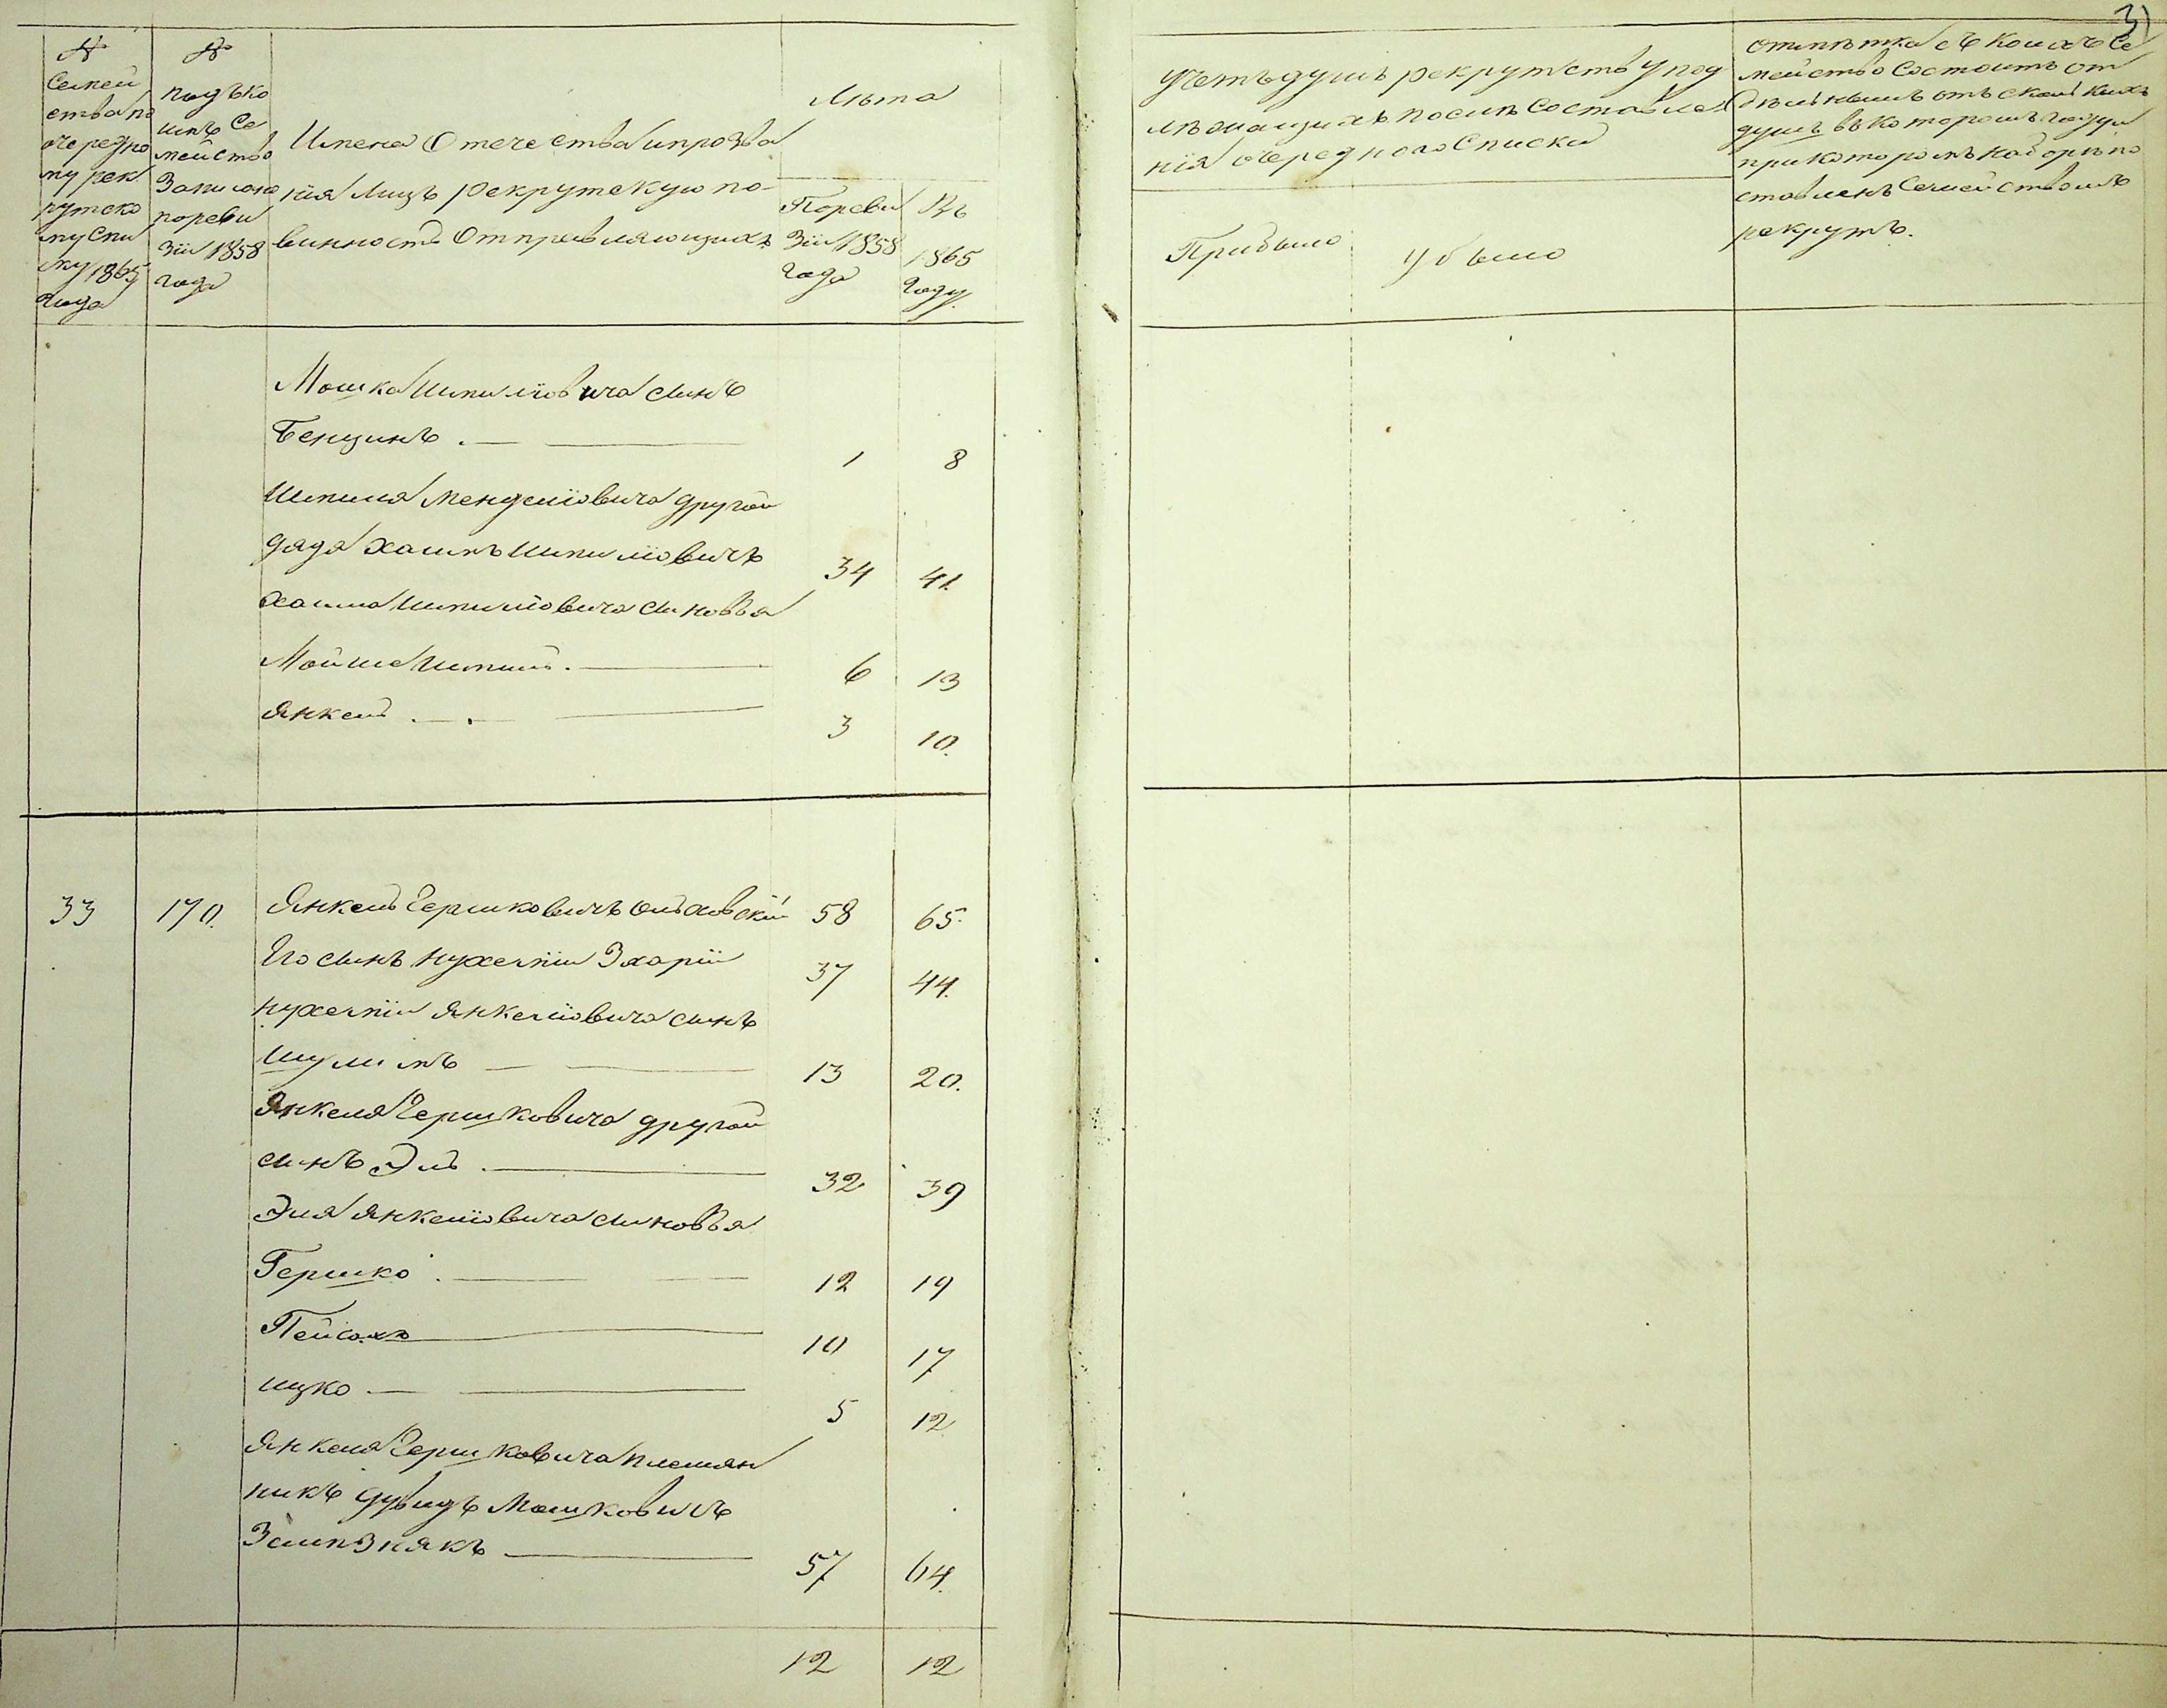 31
№
Семей
ства по
очередно
му рек
рутско
му спи
ску 1865
года
№
подъко
имъ Се
мейство
Записано
пореви
зіи 1858
года
Имена Отечества ипрозва
нія Лицъ рекрутскую по-
винность Отправляющихъ
Лѣта
Пореви
зіи 1858
года
Въ
1865
году
Учетъ душъ рекрутству под
лѣжащихъ послѣ Составле
нія очереднаго Списка
Прибыло
Убыло
Отмѣтка съ коихъ Се
мейство Состоитъ от
душъ въ которомъ году и
при которомъ наборѣ по
ставленъ Семействомъ
рекрутъ.
Мошка Шмилiовича сынъ
Бенцинъ . — — 1 8
Шмиля Менделіовича другой
дядя Хаимъ Шмиліовичъ 34 41
Хаима Шмиліовича сыновья
Мойше Шмиль . — 6 13
Янкель . — . — 3 10.
33 170. Янкель Гершковичъ Ольховскій 58 65.
Его сынъ Нухемпи Зхарiи 37 44.
Нухемпи Янкеліовича сынъ
Шулимъ — — 13 20.
Янкеля Гершковича другой
сынъ Эль . — 32 39
Эля Янкеліовича сыновья
Гершко . — — 12 19
Пейсахъ — 10 17
Ицко . — — 5 12
Янкеля Гершковича племян
никъ Дувидъ Мошковичъ
— 57 64.
12 12